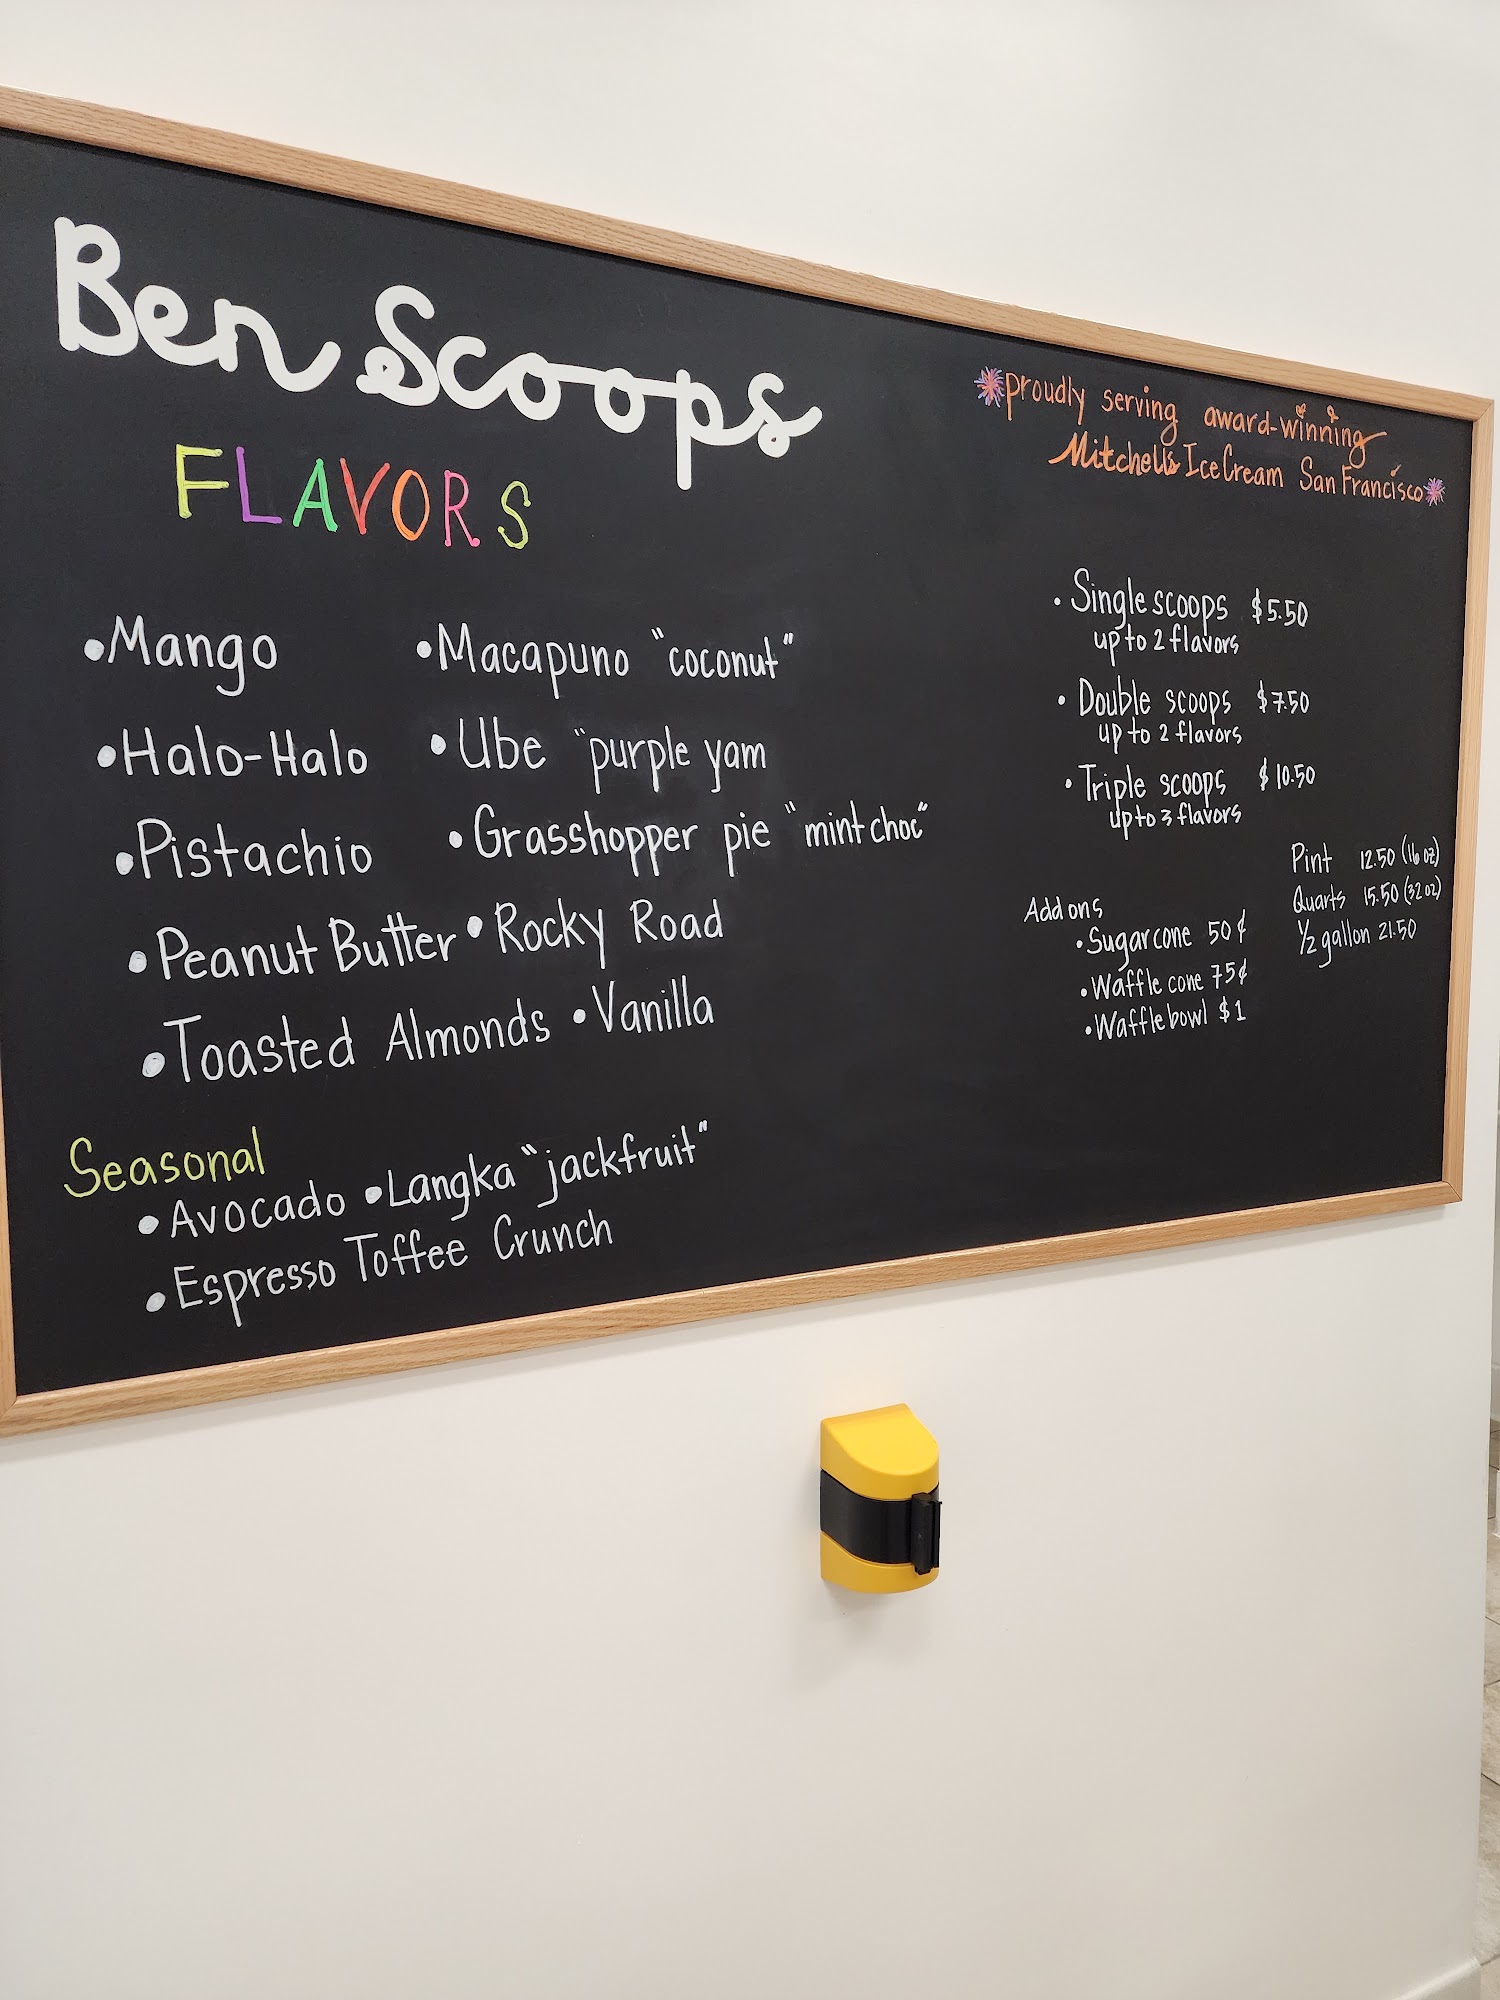 Ben Scoops
FLAVORS
•Mango
•Halo-Halo
•Pistachio
•Peanut Butter
•Toasted Almonds
•Macapuno "coconut"
•Ube "purple yam
•Grasshopper pie "mint choc"
•Rocky Road
•Vanilla
Seasonal
•Avocado •Langka "jackfruit"
•Espresso Toffee Crunch
proudly serving award-winning
Mitchell's Ice Cream San Francisco
•Single scoops $5.50
up to 2 flavors
•Double scoops $7.50
up to 2 flavors
•Triple scoops $10.50
up to 3 flavors
Add ons
•Sugar cone 50¢
•Waffle cone 75¢
•Waffle bowl $1
Pint 12.50 (16 oz)
Quarts 15.50 (32 oz)
1/2 gallon 21.50